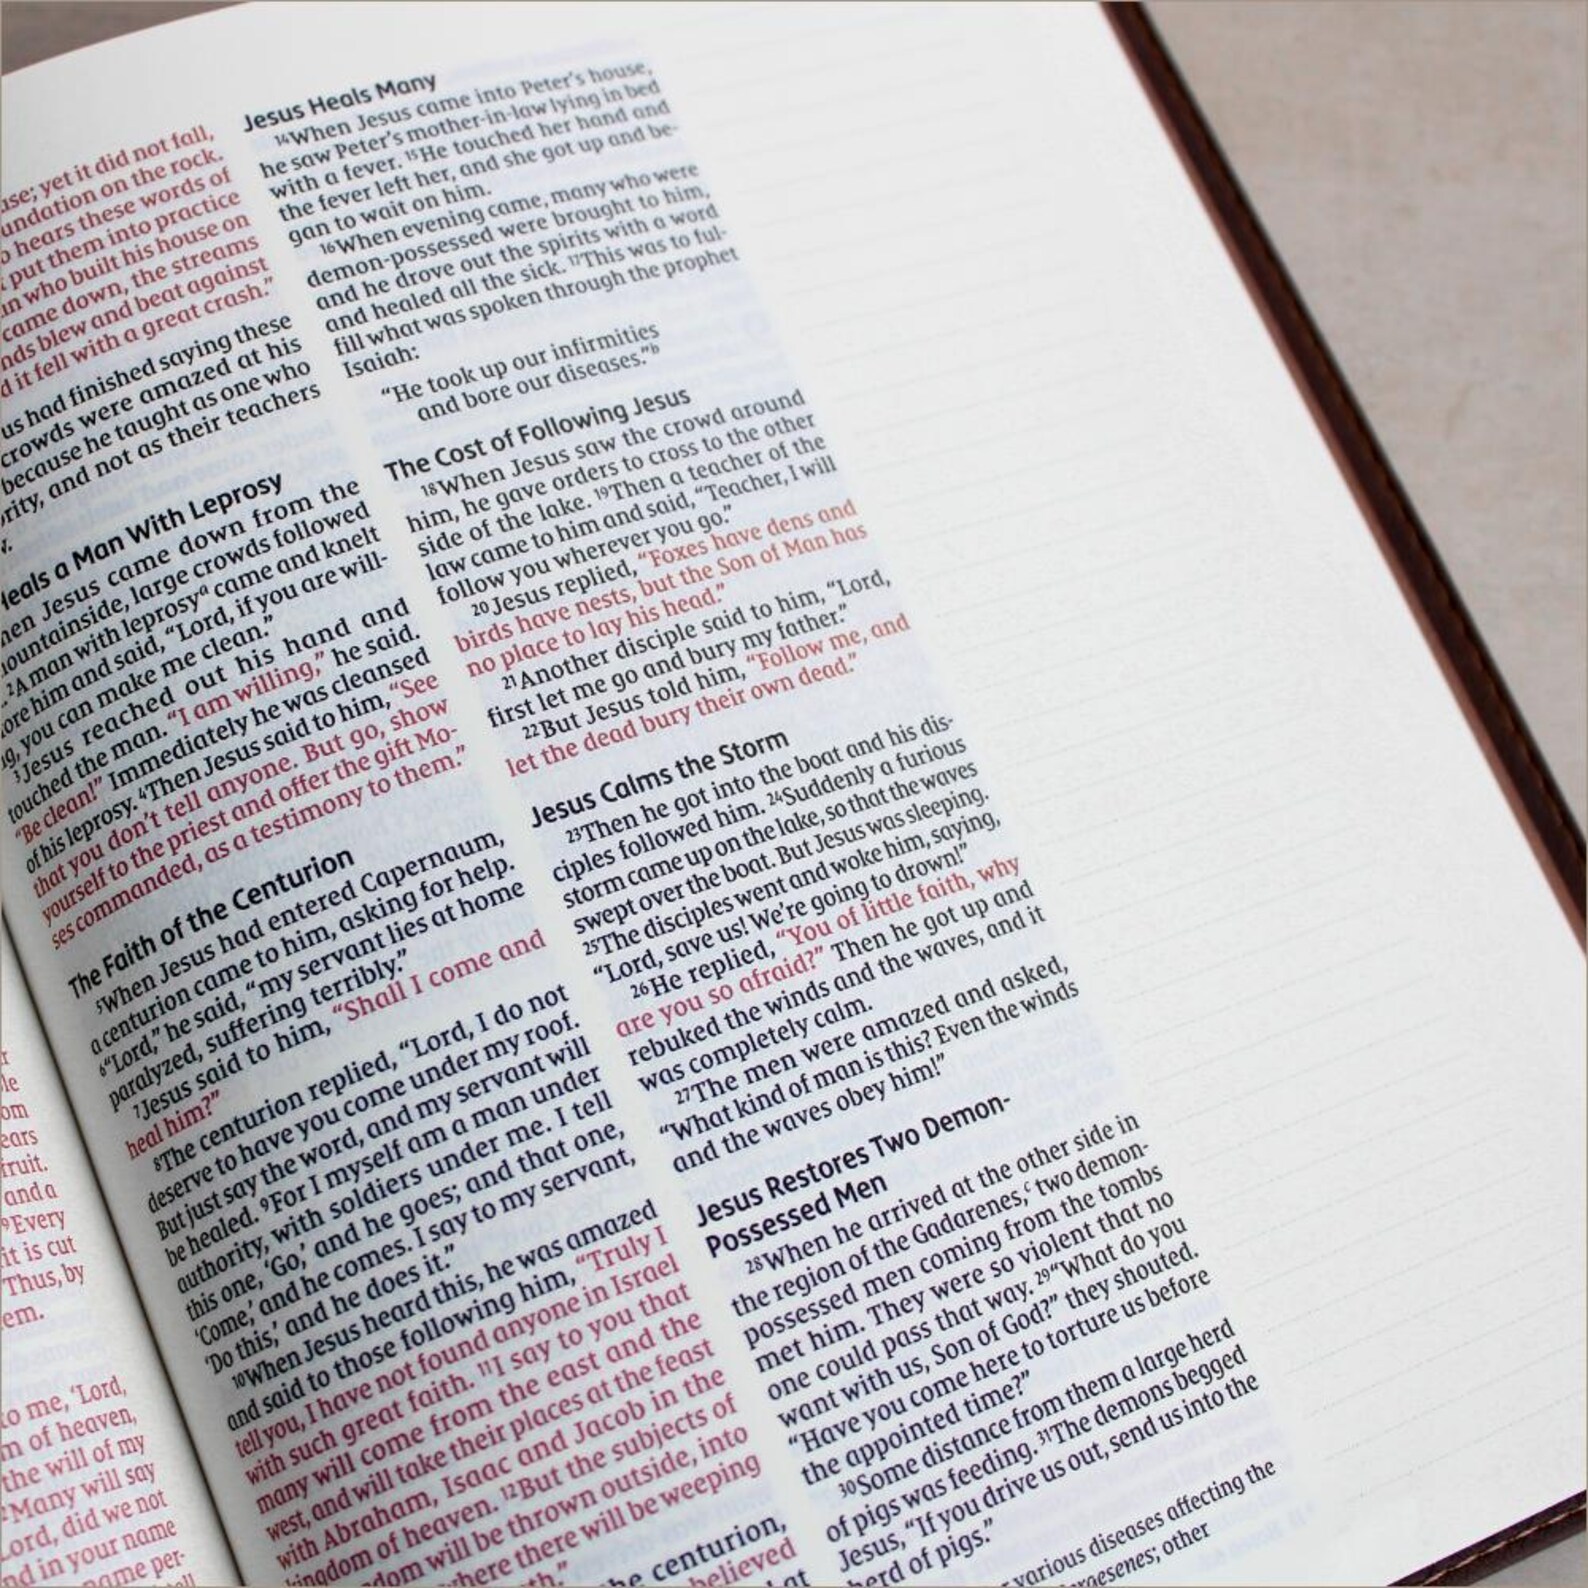 r
le
om
ears
fruit.
and a
⁹Every
it is cut
Thus, by
em.
to me, ‘Lord,
m of heaven,
the will of my
Many will say
Lord, did we not
nd in your name
name per-
use; yet it did not fall,
undation on the rock.
o hears these words of
put them into practice
an who built his house on
came down, the streams
nds blew and beat against
d it fell with a great crash.”
us had finished saying these
crowds were amazed at his
because he taught as one who
ority, and not as their teachers
w.
Heals a Man With Leprosy
hen Jesus came down from the
ountainside, large crowds followed
²A man with leprosyᵃ came and knelt
ore him and said, “Lord, if you are will-
ng, you can make me clean.”
³Jesus reached out his hand and
touched the man. “I am willing,” he said.
“Be clean!” Immediately he was cleansed
of his leprosy. ⁴Then Jesus said to him, “See
that you don’t tell anyone. But go, show
yourself to the priest and offer the gift Mo-
ses commanded, as a testimony to them.”
The Faith of the Centurion
⁵When Jesus had entered Capernaum,
a centurion came to him, asking for help.
⁶“Lord,” he said, “my servant lies at home
paralyzed, suffering terribly.”
⁷Jesus said to him, “Shall I come and
heal him?”
⁸The centurion replied, “Lord, I do not
deserve to have you come under my roof.
But just say the word, and my servant will
be healed. ⁹For I myself am a man under
authority, with soldiers under me. I tell
this one, ‘Go,’ and he goes; and that one,
‘Come,’ and he comes. I say to my servant,
‘Do this,’ and he does it.”
¹⁰When Jesus heard this, he was amazed
and said to those following him, “Truly I
tell you, I have not found anyone in Israel
with such great faith. ¹¹I say to you that
many will come from the east and the
west, and will take their places at the feast
with Abraham, Isaac and Jacob in the
kingdom of heaven. ¹²But the subjects of
dom will be thrown outside, into
where there will be weeping
th.”
he centurion,
believed
at
Jesus Heals Many
¹⁴When Jesus came into Peter’s house,
he saw Peter’s mother-in-law lying in bed
with a fever. ¹⁵He touched her hand and
the fever left her, and she got up and be-
gan to wait on him.
¹⁶When evening came, many who were
demon-possessed were brought to him,
and he drove out the spirits with a word
and healed all the sick. ¹⁷This was to ful-
fill what was spoken through the prophet
Isaiah:
“He took up our infirmities
and bore our diseases.”ᵇ
The Cost of Following Jesus
¹⁸When Jesus saw the crowd around
him, he gave orders to cross to the other
side of the lake. ¹⁹Then a teacher of the
law came to him and said, “Teacher, I will
follow you wherever you go.”
²⁰Jesus replied, “Foxes have dens and
birds have nests, but the Son of Man has
no place to lay his head.”
²¹Another disciple said to him, “Lord,
first let me go and bury my father.”
²²But Jesus told him, “Follow me, and
let the dead bury their own dead.”
Jesus Calms the Storm
²³Then he got into the boat and his dis-
ciples followed him. ²⁴Suddenly a furious
storm came up on the lake, so that the waves
swept over the boat. But Jesus was sleeping.
²⁵The disciples went and woke him, saying,
“Lord, save us! We’re going to drown!”
²⁶He replied, “You of little faith, why
are you so afraid?” Then he got up and
rebuked the winds and the waves, and it
was completely calm.
²⁷The men were amazed and asked,
“What kind of man is this? Even the winds
and the waves obey him!”
Jesus Restores Two Demon-
Possessed Men
²⁸When he arrived at the other side in
the region of the Gadarenes,ᶜ two demon-
possessed men coming from the tombs
met him. They were so violent that no
one could pass that way. ²⁹“What do you
want with us, Son of God?” they shouted.
“Have you come here to torture us before
the appointed time?”
³⁰Some distance from them a large herd
of pigs was feeding. ³¹The demons begged
Jesus, “If you drive us out, send us into the
herd of pigs.”
various diseases affecting the
raesenes; other